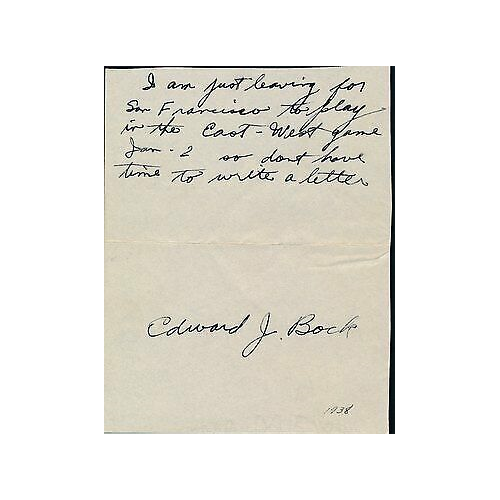 I am just leaving for
San Francisco to play
in the East-West game
Jan. 2 so dont have
time to write a letter
Edward J. Bock
1938